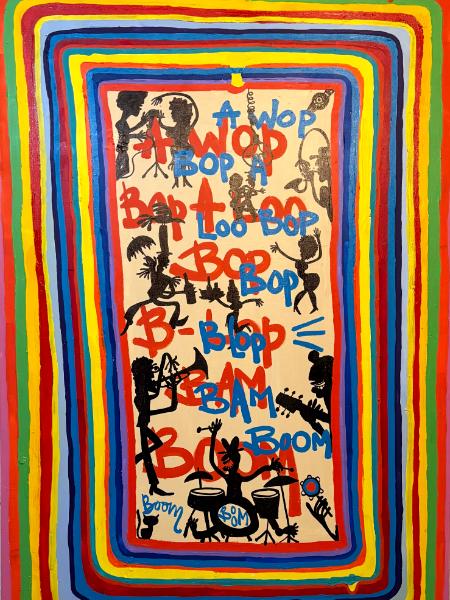 A WOP
A WOP
BOP A
BOP A LOO
LOO BOP
BOP
BOP
B-LOP
BLOP
BAM
BAM
BOOM
BOOM
Boom
BOOM